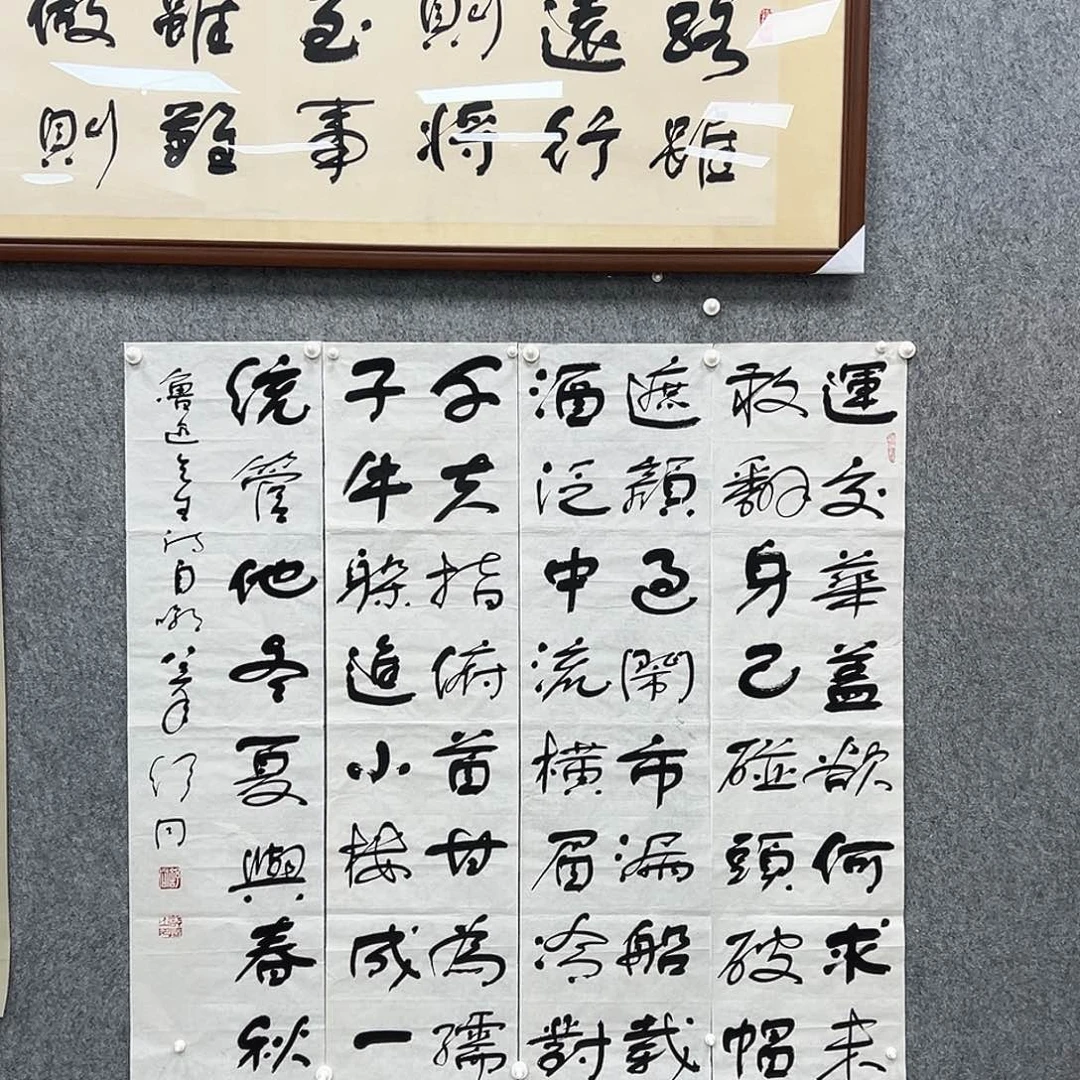 路雖
遠行
則將
至事
雖難
做則
運交華蓋欲何求未
敢翻身已碰頭破帽
遮顏過鬧市漏船載
酒泛中流橫眉冷對
千夫指俯首甘為孺
子牛躲進小樓成一
統管他冬夏與春秋
魯迅先生詩自嘲八三年舒同